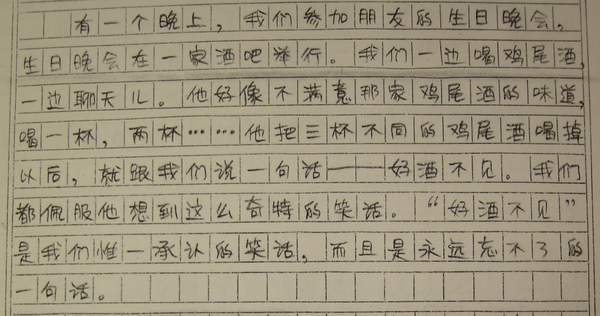 有一个晚上，我们参加朋友的生日晚会，
生日晚会在一家酒吧举行。我们一边喝鸡尾酒，
一边聊天儿。他好像不满意那家鸡尾酒的味道，
喝一杯，两杯……他把三杯不同的鸡尾酒喝掉
以后，就跟我们说一句话——好酒不见。我们
都佩服他想到这么奇特的笑话。“好酒不见”
是我们惟一承认的笑话，而且是永远忘不了的
一句话。